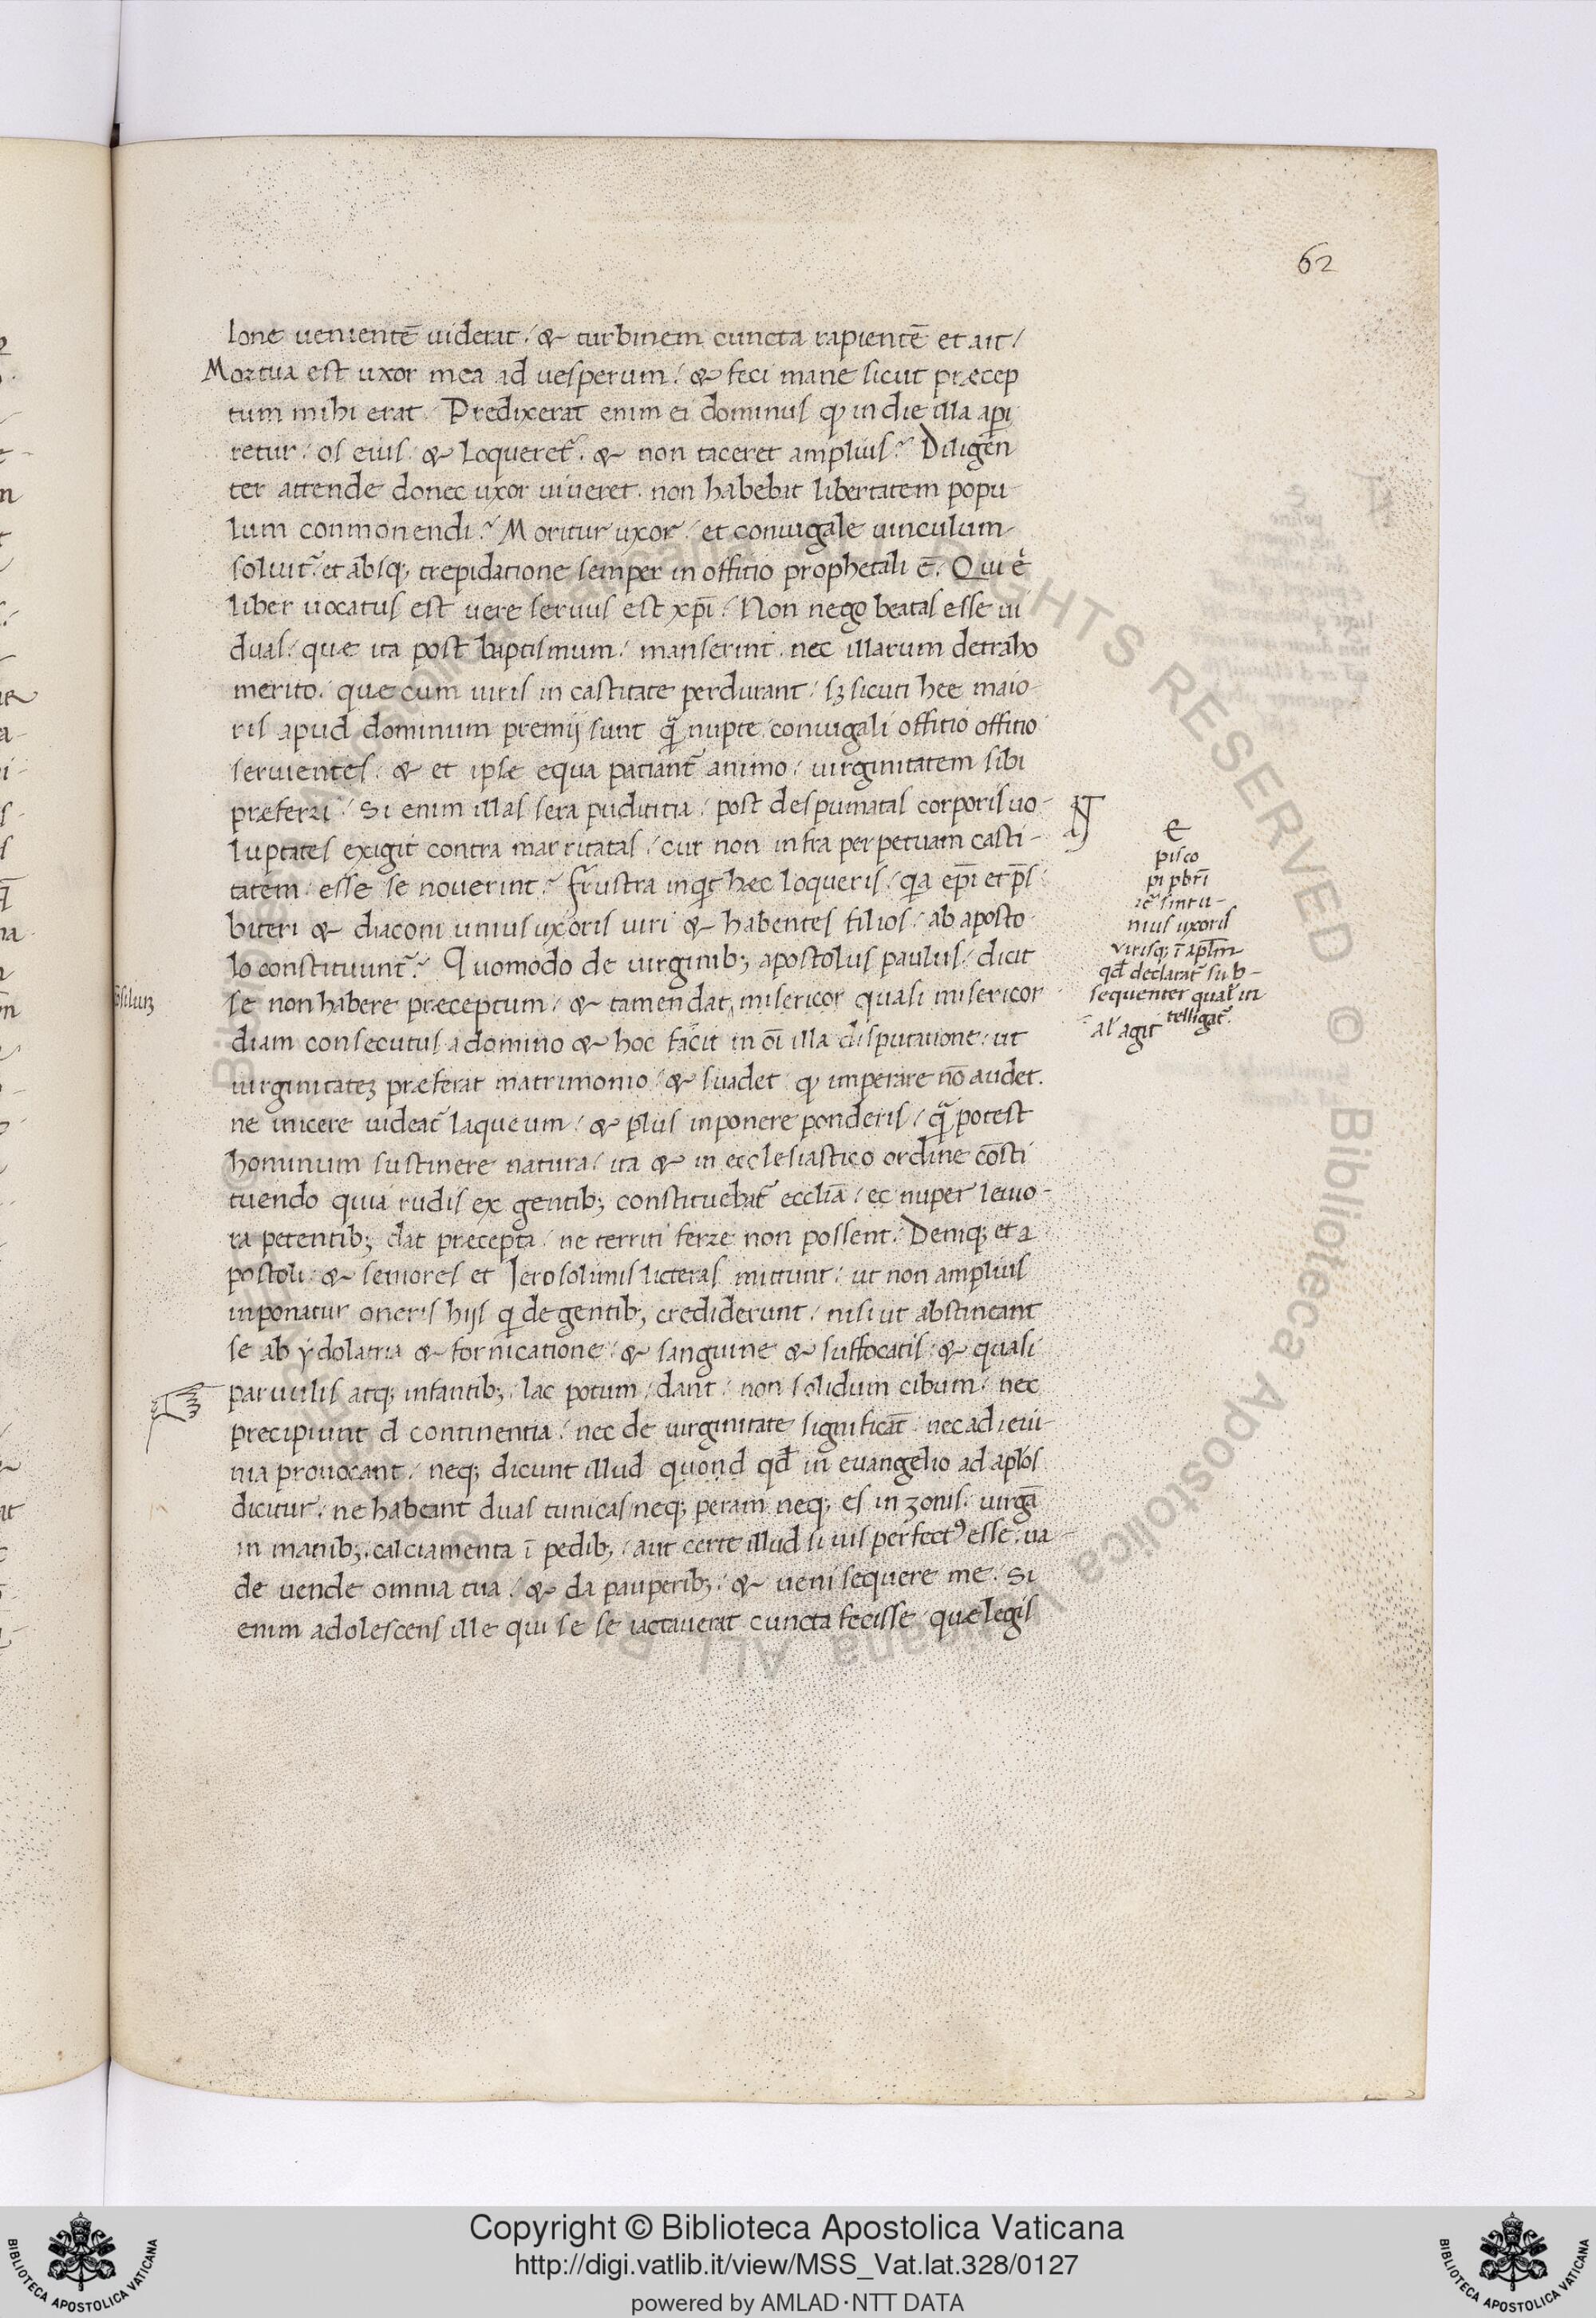 62
lone uenientē uiderat / & turbinem cuncta rapientē et ait /
Mortua est uxor mea ad uesperum / & feci mane sicut præcep
tum mihi erat . Predixerat enim ei dominus ꝙ in die illa aꝑi
retur / os eius / & loqueret᷑ . & non taceret amplius . Diligen
ter attende donec uxor uiueret . non habebat libertatem popu
lum conmonendi . Moritur uxor / et coniugale uinculum
soluit᷑ . et absq; trepidatione semper in offitio prophetali ē . Qui .n.
liber uocatus est uere seruus est xp̄i . Non nego beatas esse ui
duas / quæ ita post baptismum / manserint . nec illarum detraho
merito . que cum uiris in castitate perdurant / sꝫ sicuti hee maio
ris apud dominum premij sunt quā nupte coniugali offitio offitio
seruientes . & et ipse equa patiant᷑ animo / uirginitatem sibi
præferri . Si enim illas sera puditi tia / post despumatas corporis uo-
luptates exigit contra marritatas / cur non infra perpetuam casti-
tatem / esse se nouerint . frustra inqͥt hæc loqueris / qͥa ep̄i et p̄s
biteri & diaconi unius uxoris uiri & habentes filios / ab aposto
lo constituunt᷑ . Quomodo de uirginib; apostolus paulus / dicit
se non habere præceptum / & tamen dat misericor quasi misericor
diam consecutus a domino & hoc facit in oī illa disputatione / ut
uirginitateꝫ præferat matrimonio / & suadet ꝙ imperare nō audet .
ne inicere uideat᷑ laqueum / & plus inponere ponderis / quā potest
hominum sustinere natura / ita & in ecclesiastico ordine cōsti
tuendo quia rudis ex gentib; constituebat᷑ ecclīa / ec nuper leuio-
ra petentib; dat præcepta / ne territi ferre non possent . Deniq; et a
postoli & seniores et Jerosolimis licteras mittunt / ut non amplius
inponatur oneris hijs qͥ de gentib; crediderunt / nisi ut abstineant
se ab ydolatria & fornicatione / & sanguine & suffocatis / & quasi
paruulis atq; infantib; / lac potum / dant / non solidum cibum / nec
precipiunt d continentia / nec de uirginitate significāt . nec ad ieiu-
nia prouocant / neq; dicunt illud quond qđ in euangelio ad apl̄os
dicitur / ne habeant duas tunicas / neq; peram neq; es in zonis / uirgā
in manib; . calciamenta ī pedib; / aut certe illud si uis perfectꝰ esse . ua-
de uende omnia tua / & da pauperib; / & ueni sequere me . Si
enim adolescens ille qui se se iactauerat cuncta fecisse / que legis
silium
e
pisco
pi pbr̄i
sint u-
nius uxoris
virisq; ī apl̄m
qđ declarat᷑ sub-
sequenter qual̄r in
telligat᷑
al' agit
Copyright © Biblioteca Apostolica Vaticana
http://digi.vatlib.it/view/MSS_Vat.lat.328/0127
powered by AMLAD·NTT DATA